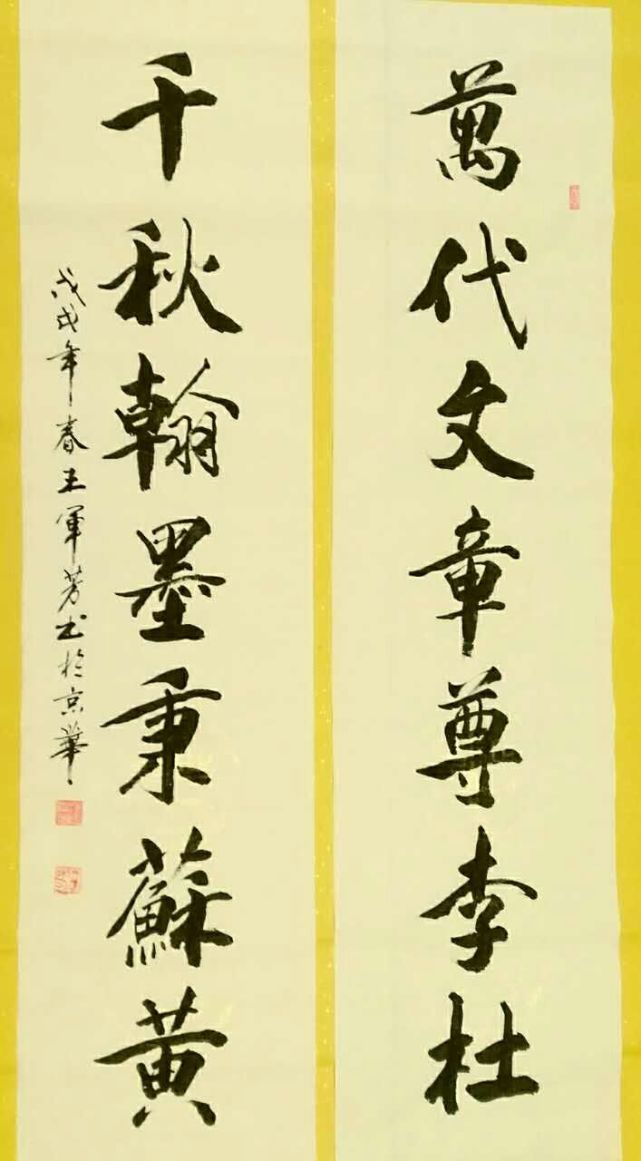 萬代文章尊李杜
千秋翰墨秉蘇黄
戊戌年春王軍芳书於京華